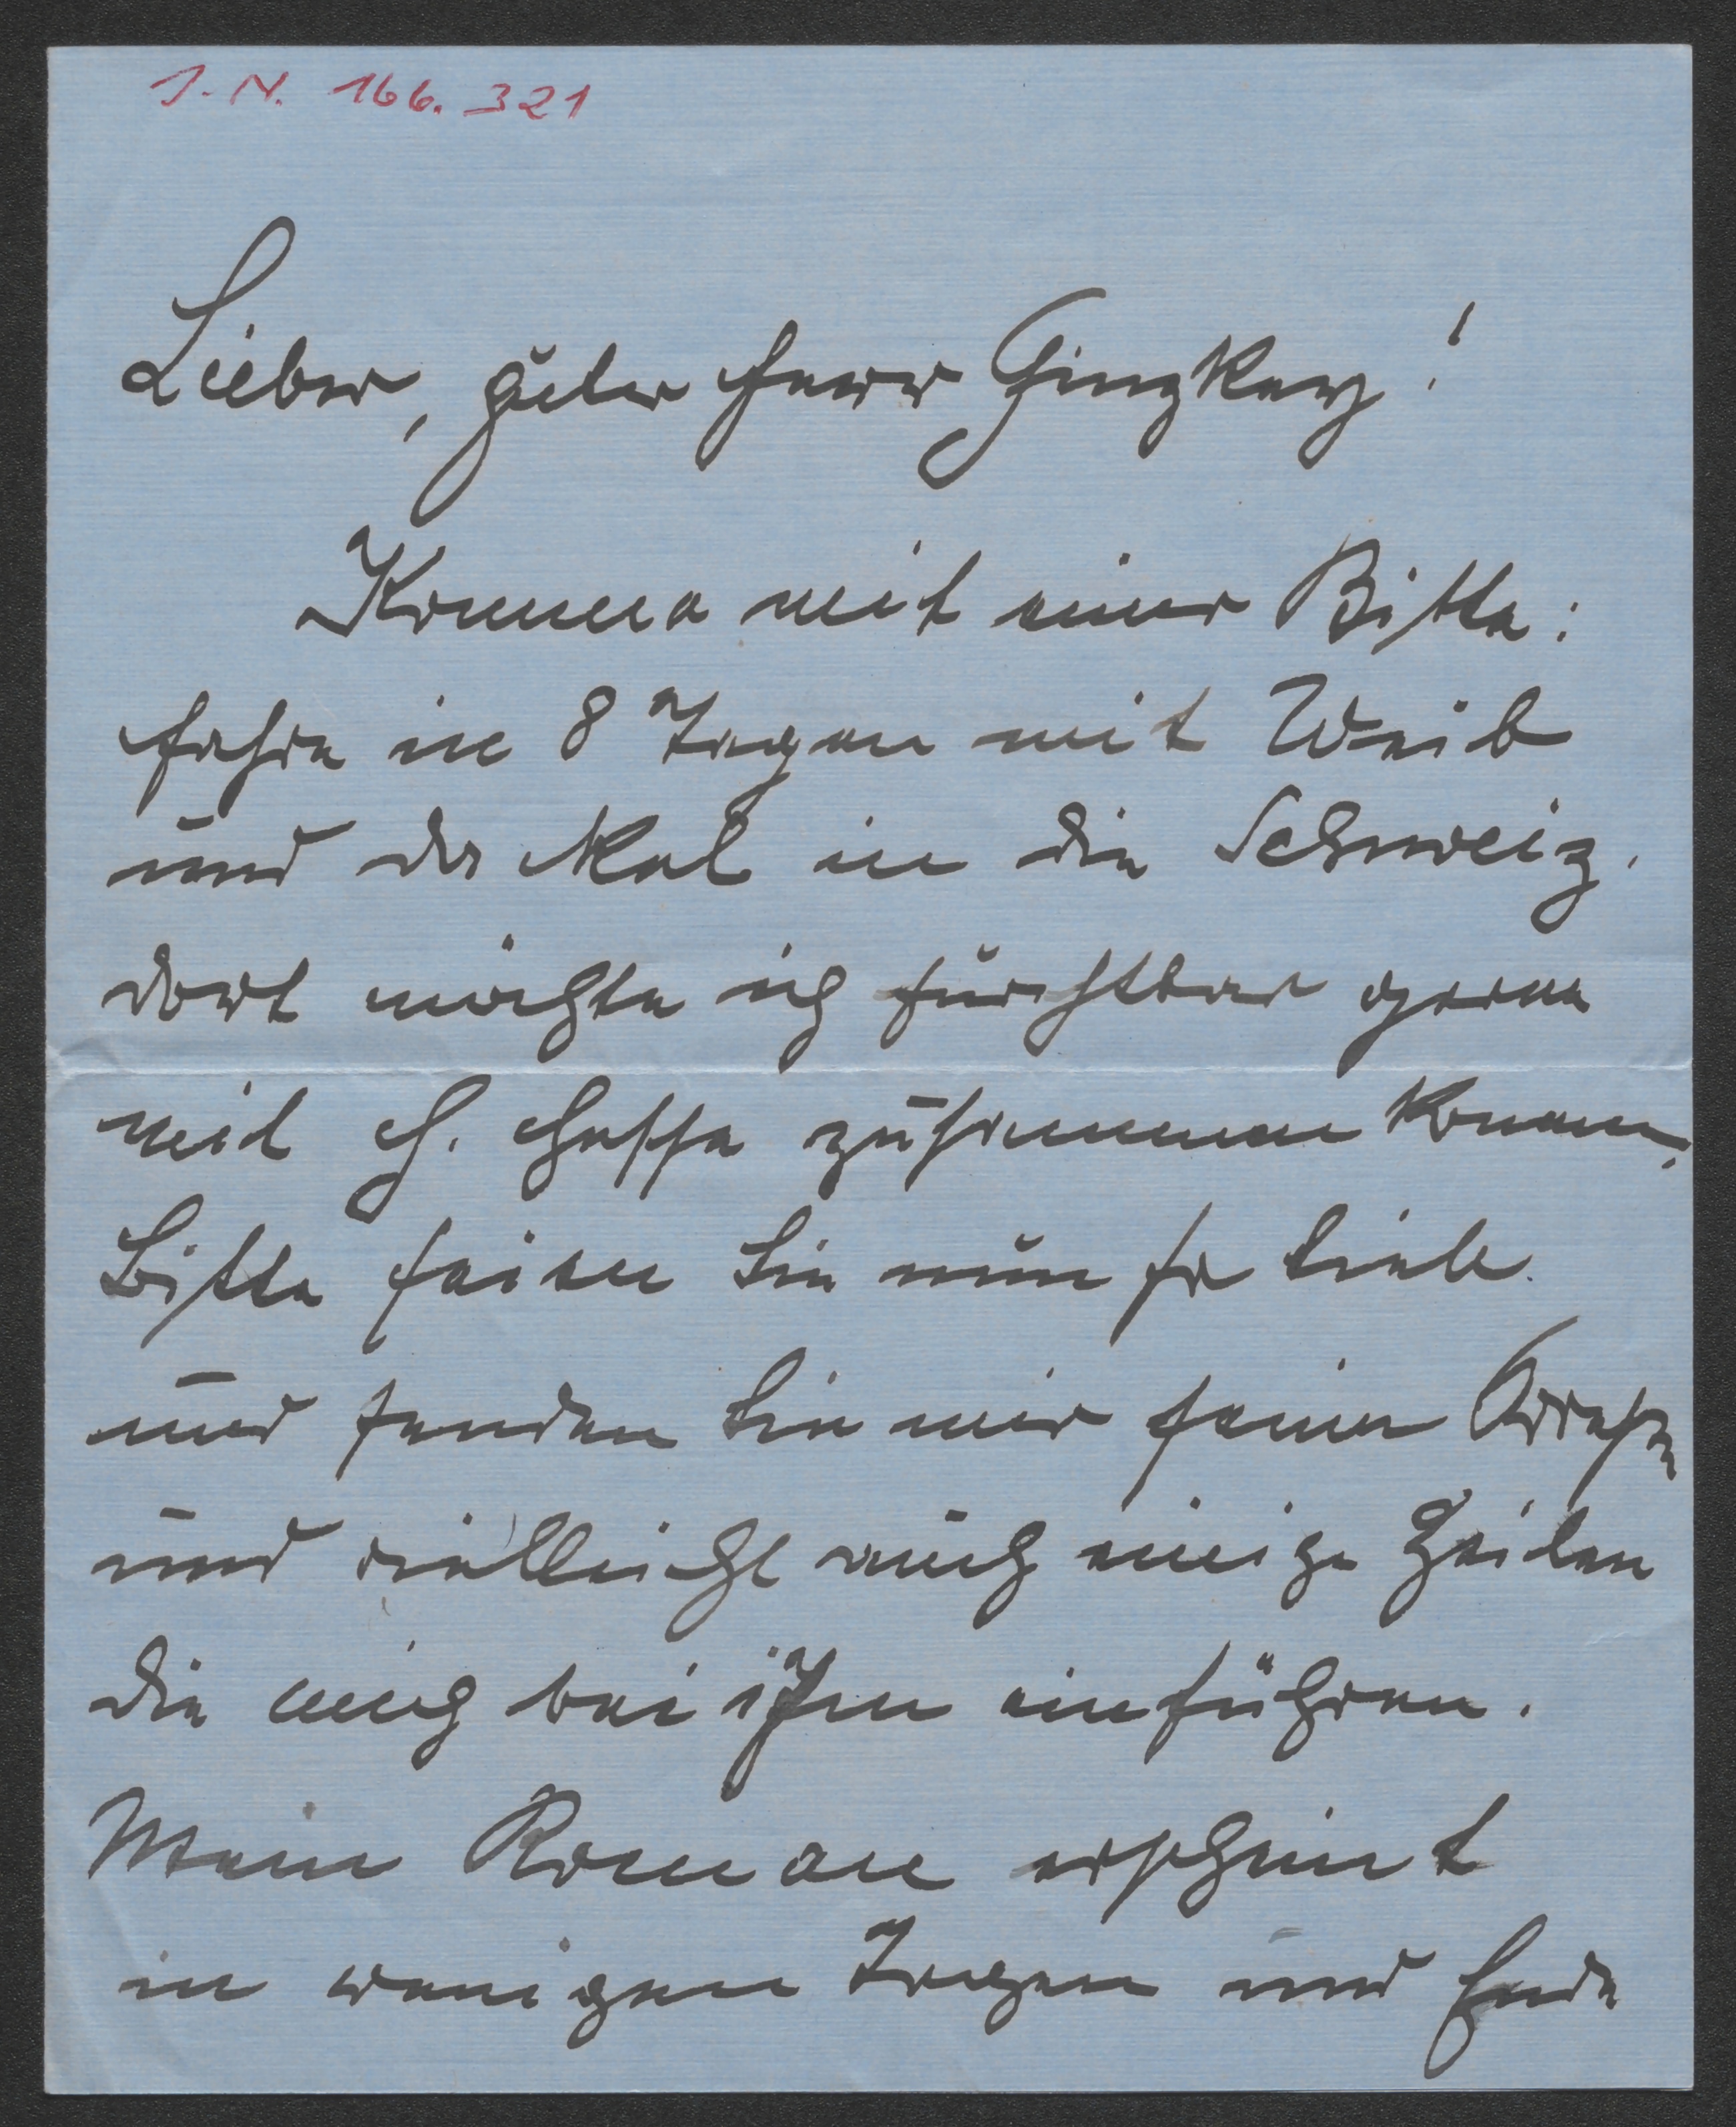 I. N. 166.321
Lieber, guter Herr Ginzkey!
Komme mit einer Bitte:
fahre in 8 Tagen mit Weib
und in die Schweiz.
dort möchte ich furchtbar gerne
mit H. Hesse zusammen kommen.
Bitte seien Sie nun so lieb
und senden Sie mir seine Adresse
und vielleicht auch einige Zeilen
die mich bei ihm einführen.
Mein Roman erscheint
in wenigen Tagen und Ende